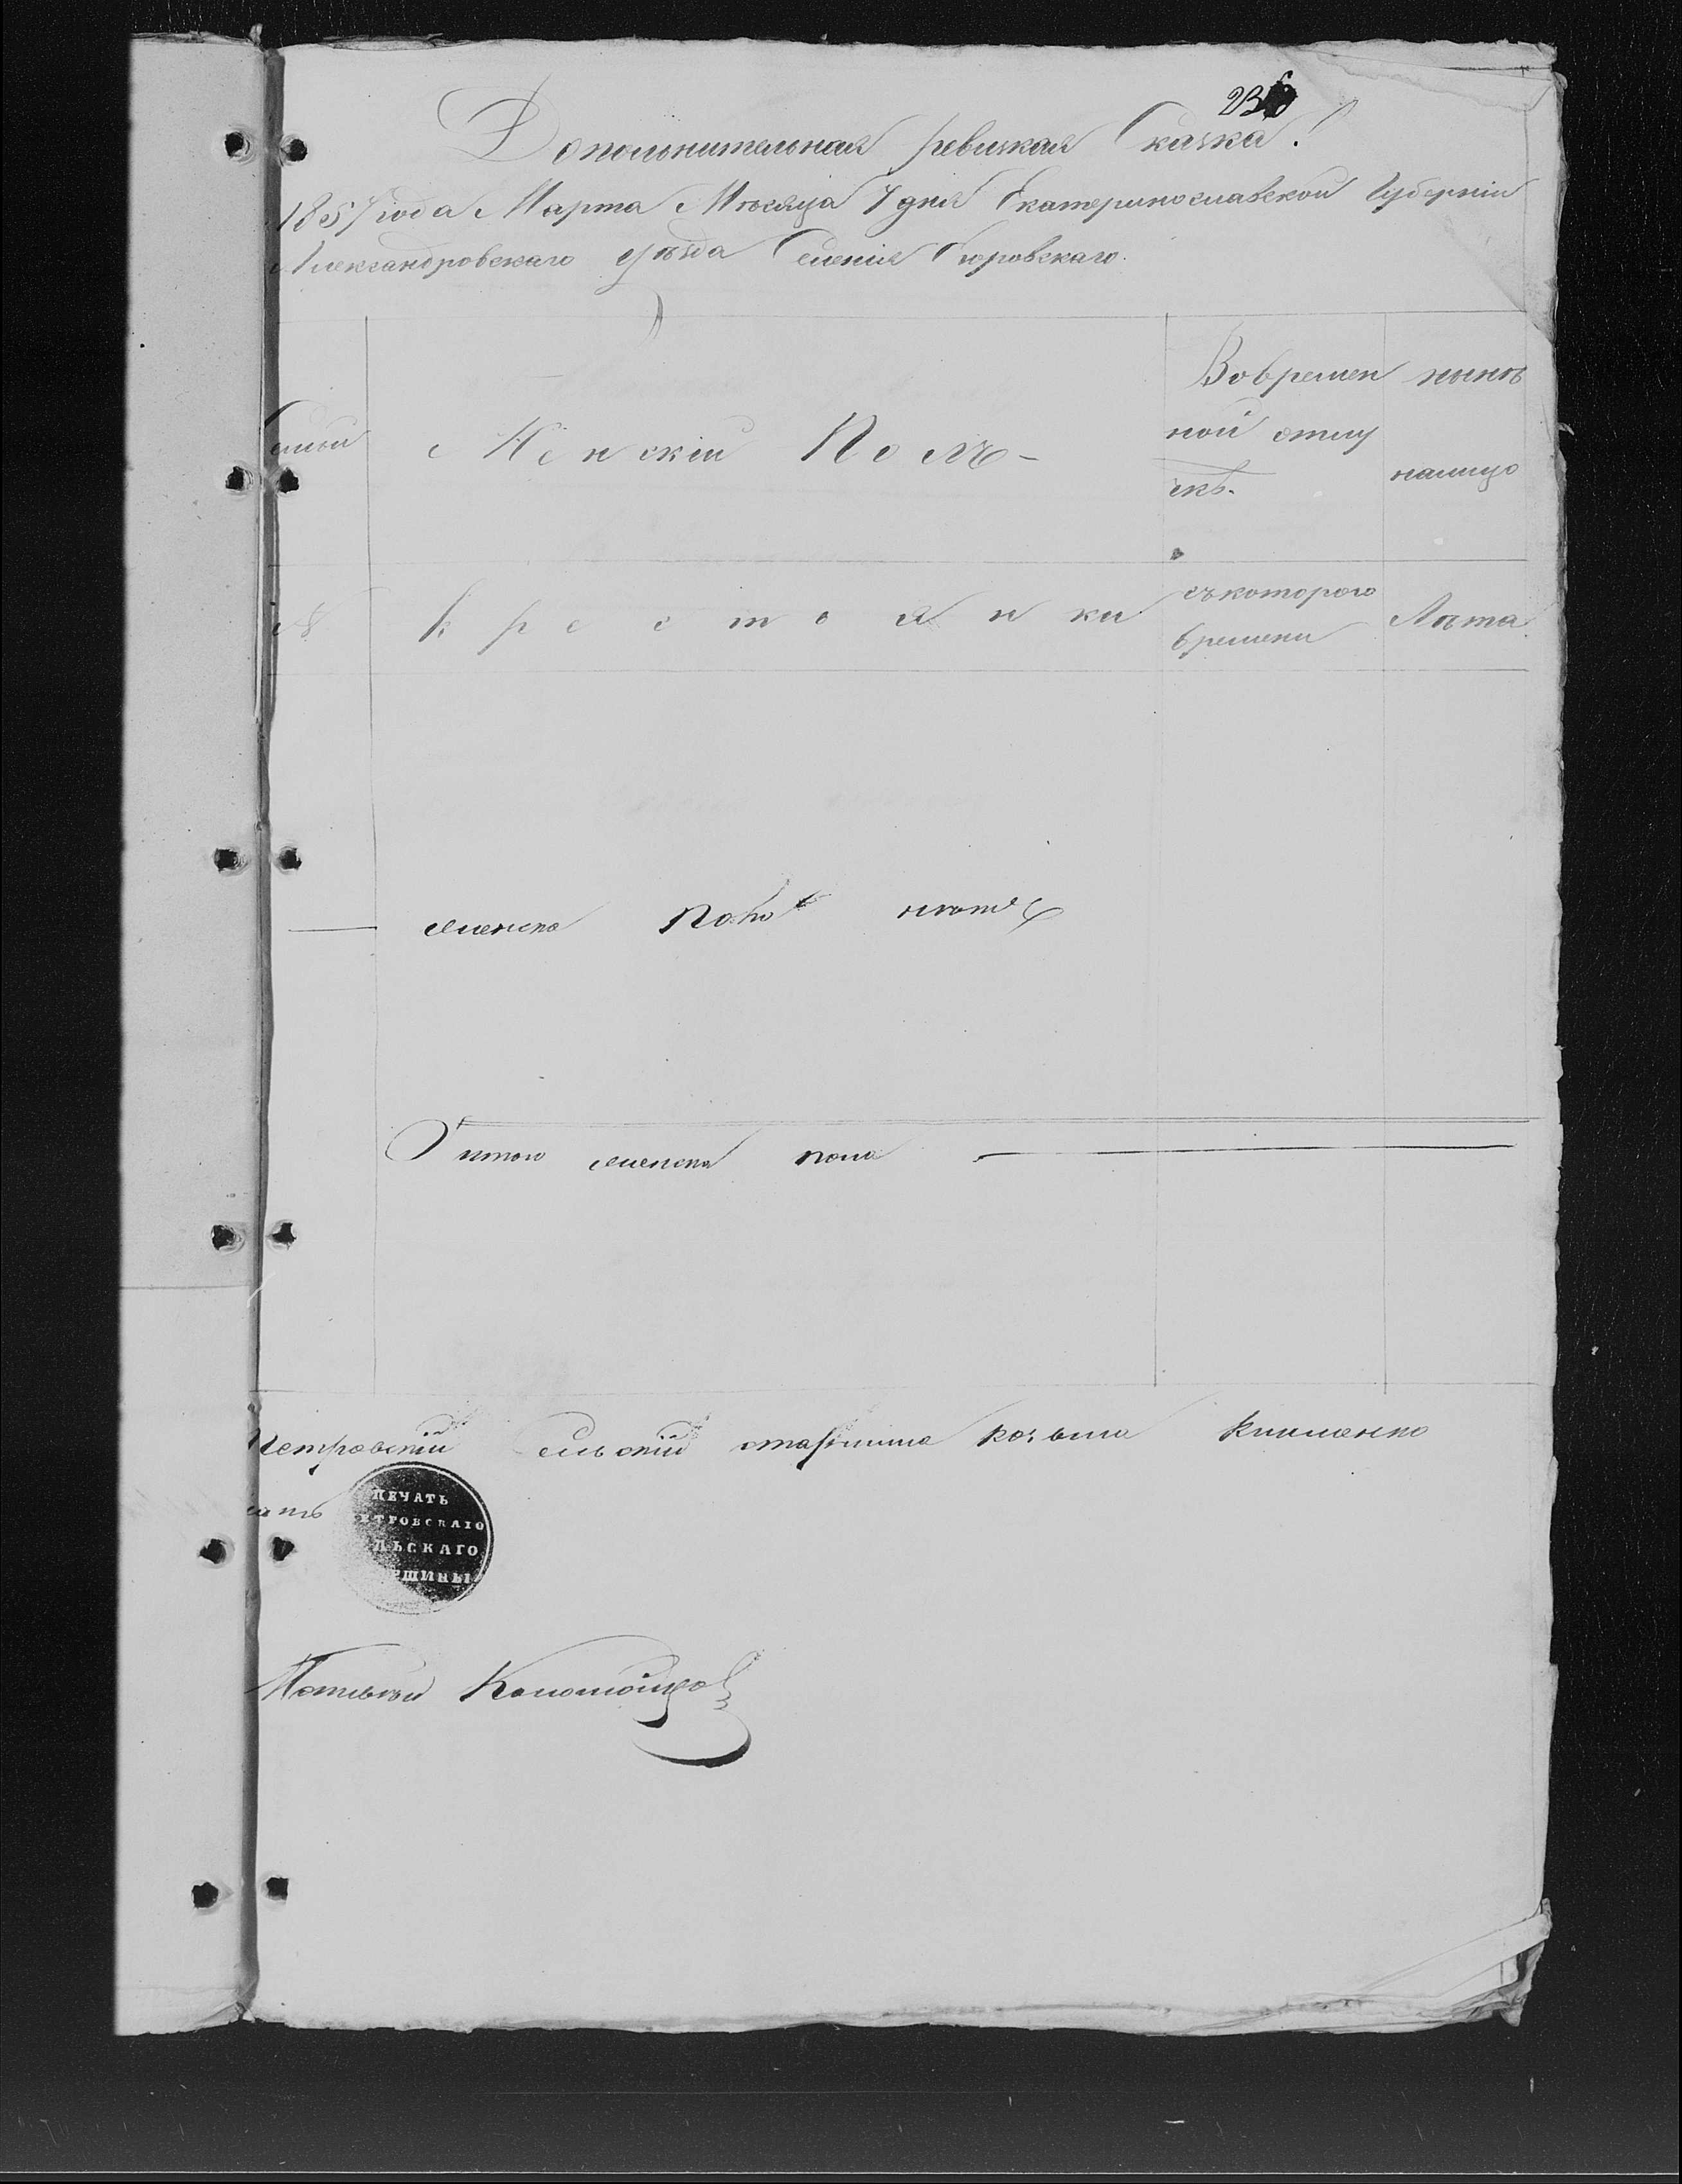 Дополнительная ревизкая Сказка!
1857 года Марта Мѣсяца 7 дня Екатеринославской Губерніи
Александровскаго уѣзда Селенія
семьи
Женскій Полъ
Вовремен
ной отлу
чкѣ.
нынѣ
налицо
№
Крестоянки
съкоторого
времени
Лѣта
женска пола нѣтъ
Итого женска пола
Петровскій сельскій старшина козьма Клименко
ПЕЧАТЬ
ЕТРОВСКАГО
ЛЬСКАГО
РШИНЫ